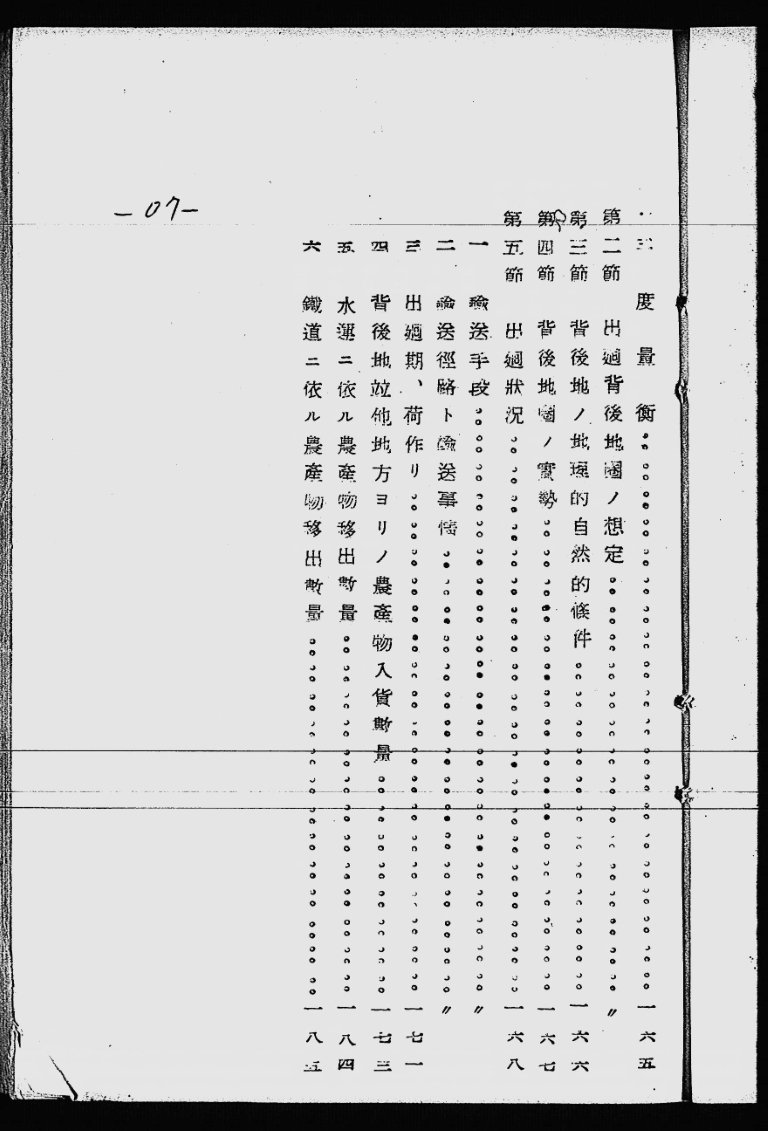 三 度量衡……一六五
第二節 出𢌞背後地圈ノ想定……〃
第三節 背後地ノ地理的自然的條件……一六六
第四節 背後地圈ノ實勢……一六七
第五節 出𢌞狀況……一六八
一 輸送手段……〃
二 輸送徑路ト輸送事情……〃
三 出𢌞期、荷作リ……一七一
四 背後地竝他地方ヨリノ農產物入貨數量……一七三
五 水運ニ依ル農產物移出數量……一八四
六 鐵道ニ依ル農產物移出數量……一八五
-07-